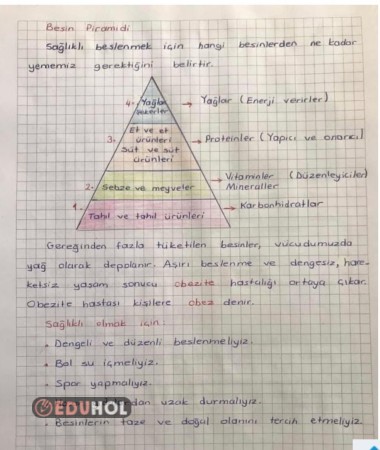 Besin Piramidi
Sağlıklı beslenmek için hangi besinlerden ne kadar
yememiz gerektiğini belirtir.
4- Yağlar şekerler → Yağlar (Enerji verirler)
3- Et ve et ürünleri Süt ve süt ürünleri → Proteinler (Yapıcı ve onarıcı)
2- Sebze ve meyveler → Vitaminler Mineraller (Düzenleyiciler)
1- Tahıl ve tahıl ürünleri → Karbonhidratlar
Gereğinden fazla tüketilen besinler, vücudumuzda
yağ olarak depolanır. Aşırı beslenme ve dengesiz, hare-
ketsiz yaşam sonucu obezite hastalığı ortaya çıkar.
Obezite hastası kişilere obez denir.
Sağlıklı olmak için
• Dengeli ve düzenli beslenmeliyiz.
• Bol su içmeliyiz.
• Spor yapmalıyız.
EDUHOL
uzak durmalıyız.
• Besinlerin taze ve doğal olanını tercih etmeliyiz.